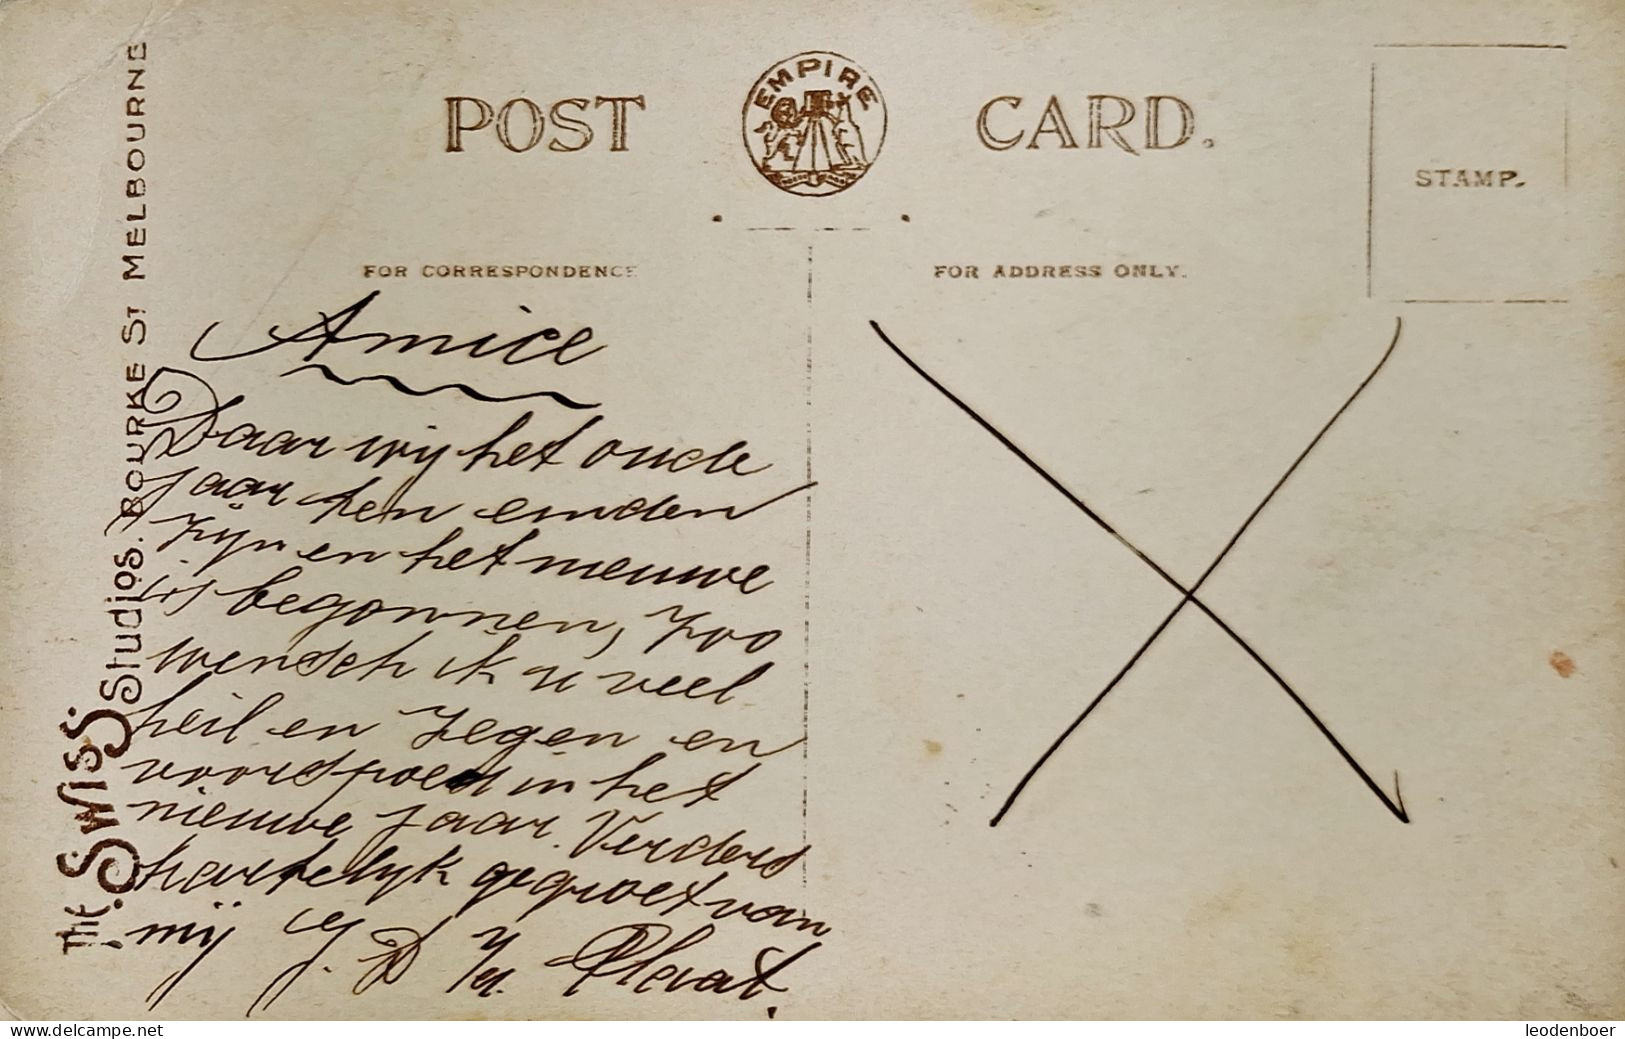 POST CARD.
EMPIRE
STAMP.
FOR CORRESPONDENCE
FOR ADDRESS ONLY.
THE SWISS STUDIOS. BOURKE ST MELBOURNE
Amice
Daar wij het oude
jaar ten einden
zijn en het nieuwe
is begonnen, zoo
wensch ik u veel
heil en zegen en
voorspoed in het
nieuwe jaar. Verders
hartelyk gegroet van
mij J. D
www.delcampe.net
leodenboer